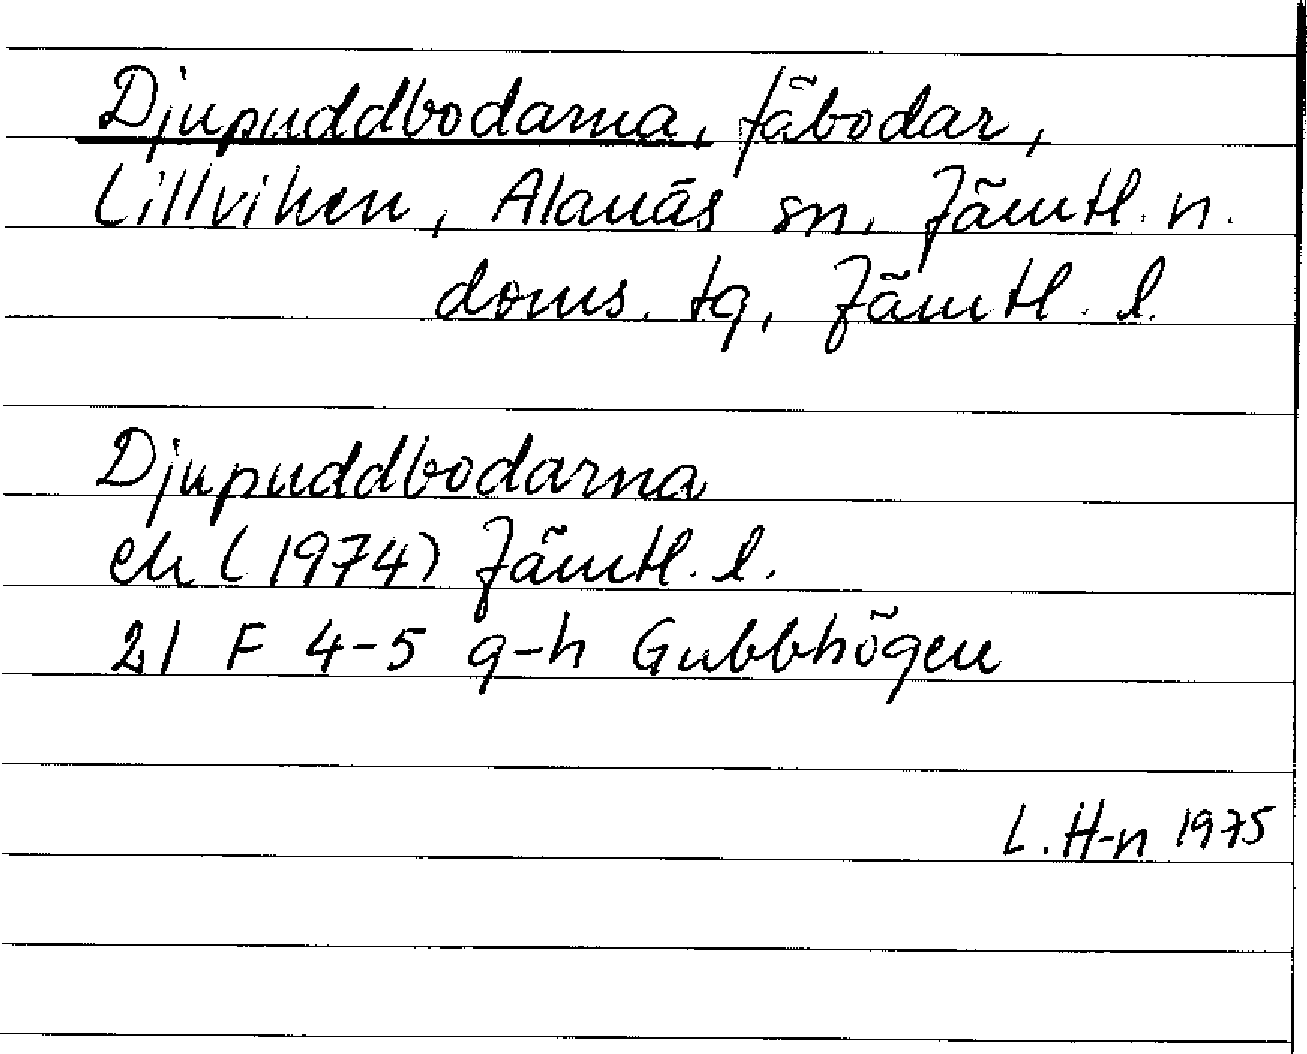 Djupuddbodarna, fäbodar,
Lillviken, Alanäs sn, Jämtl. n.
doms. tg, Jämtl. l.
Djupuddbodarna
ek (1974) Jämtl. l.
21 F 4-5 g-h Gubbhögen
L. H-n 1975